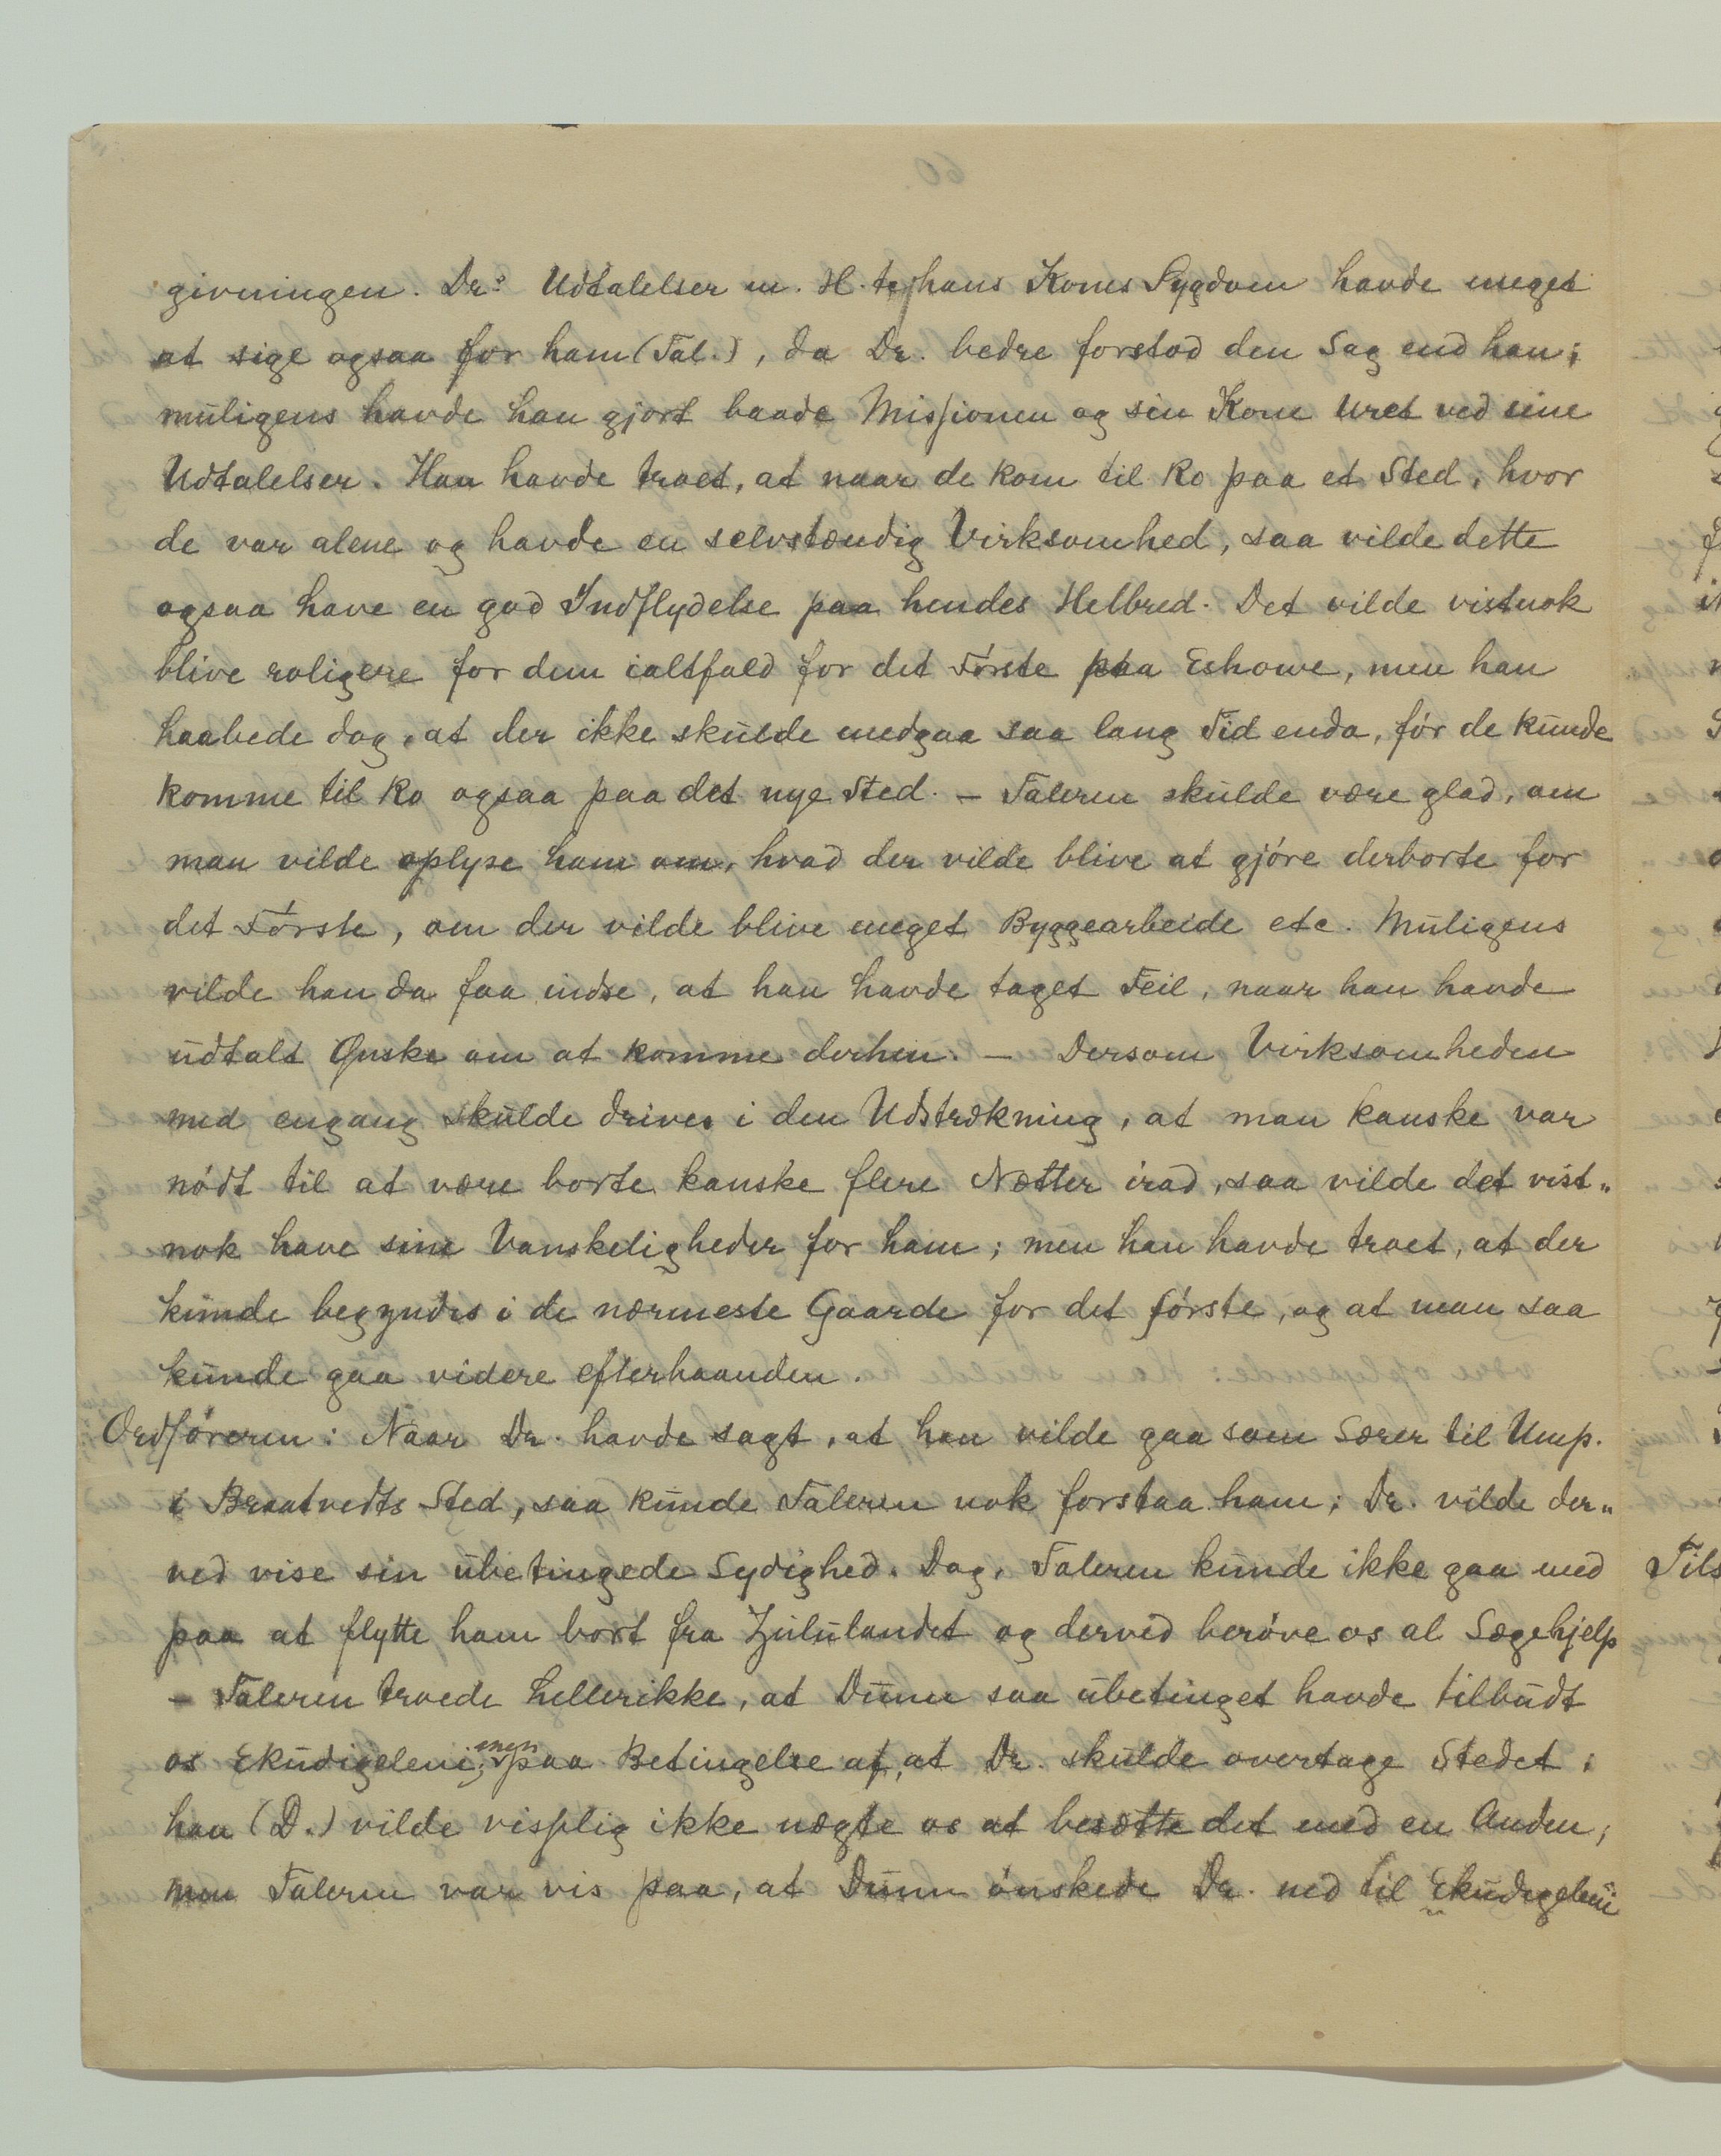 givningen. Drs Udtalelser m. H. t. hans Kones Sygdom havde meget
at sige ogsaa for ham (Tal.), da Dr. bedre forstod den Sag end han;
muligens havde han gjort baade Missionen og sin Kone Uret ved sine
Udtalelser. Han havde troet, at naar de kom til Ro paa et Sted, hvor
de var alene og havde en selvstændig Virksomhed, saa vilde dette
ogsaa have en god Indflydelse paa hendes Helbred. Det vilde vistnok
blive roligere for dem ialtfald for det Første paa Eshowe, men han
haabede dog, at der ikke skulde medgaa saa lang Tid enda, før de kunde
komme til Ro ogsaa paa det nye Sted. – Taleren skulde være glad, om
man vilde oplyse ham om, hvad der vilde blive at gjøre derborte for
det Første, om der vilde blive meget Byggearbeide etc. Muligens
vilde han da faa indse, at han havde taget Feil, naar han havde
udtalt Ønske om at komme derhen. – Dersom Virksomheden
med engang skulde drives i den Udstrækning, at man kanske var
nødt til at være borte kanske flere Nætter irad, saa vilde det vist„
nok have sine Vanskeligheder for ham; men han havde troet, at der
kunde begyndes i de nærmeste Gaarde for det første, og at man saa
kunde gaa videre efterhaanden.
Ordføreren: Naar Dr. havde sagt, at han vilde gaa som Lærer til Ump.
i Braatvedts Sted, saa kunde Taleren nok forstaa ham; Dr. vilde der„
ved vise sin ubetingede Lydighed. Dog, Taleren kunde ikke gaa med
paa at flytte ham bort fra Zululandet og derved berøve os al Lægehjelp
– Taleren troede hellerikke, at Dunn saa ubetinget havde tilbudt
os Ekudigeleni, men paa Betingelse af, at Dr. skulde overtage Stedet;
han (D.) vilde visslig ikke nægte os at besætte det med en Anden;
men Taleren var vis paa, at Dunn ønskede Dr. ned til Ekudigeleni
Tils